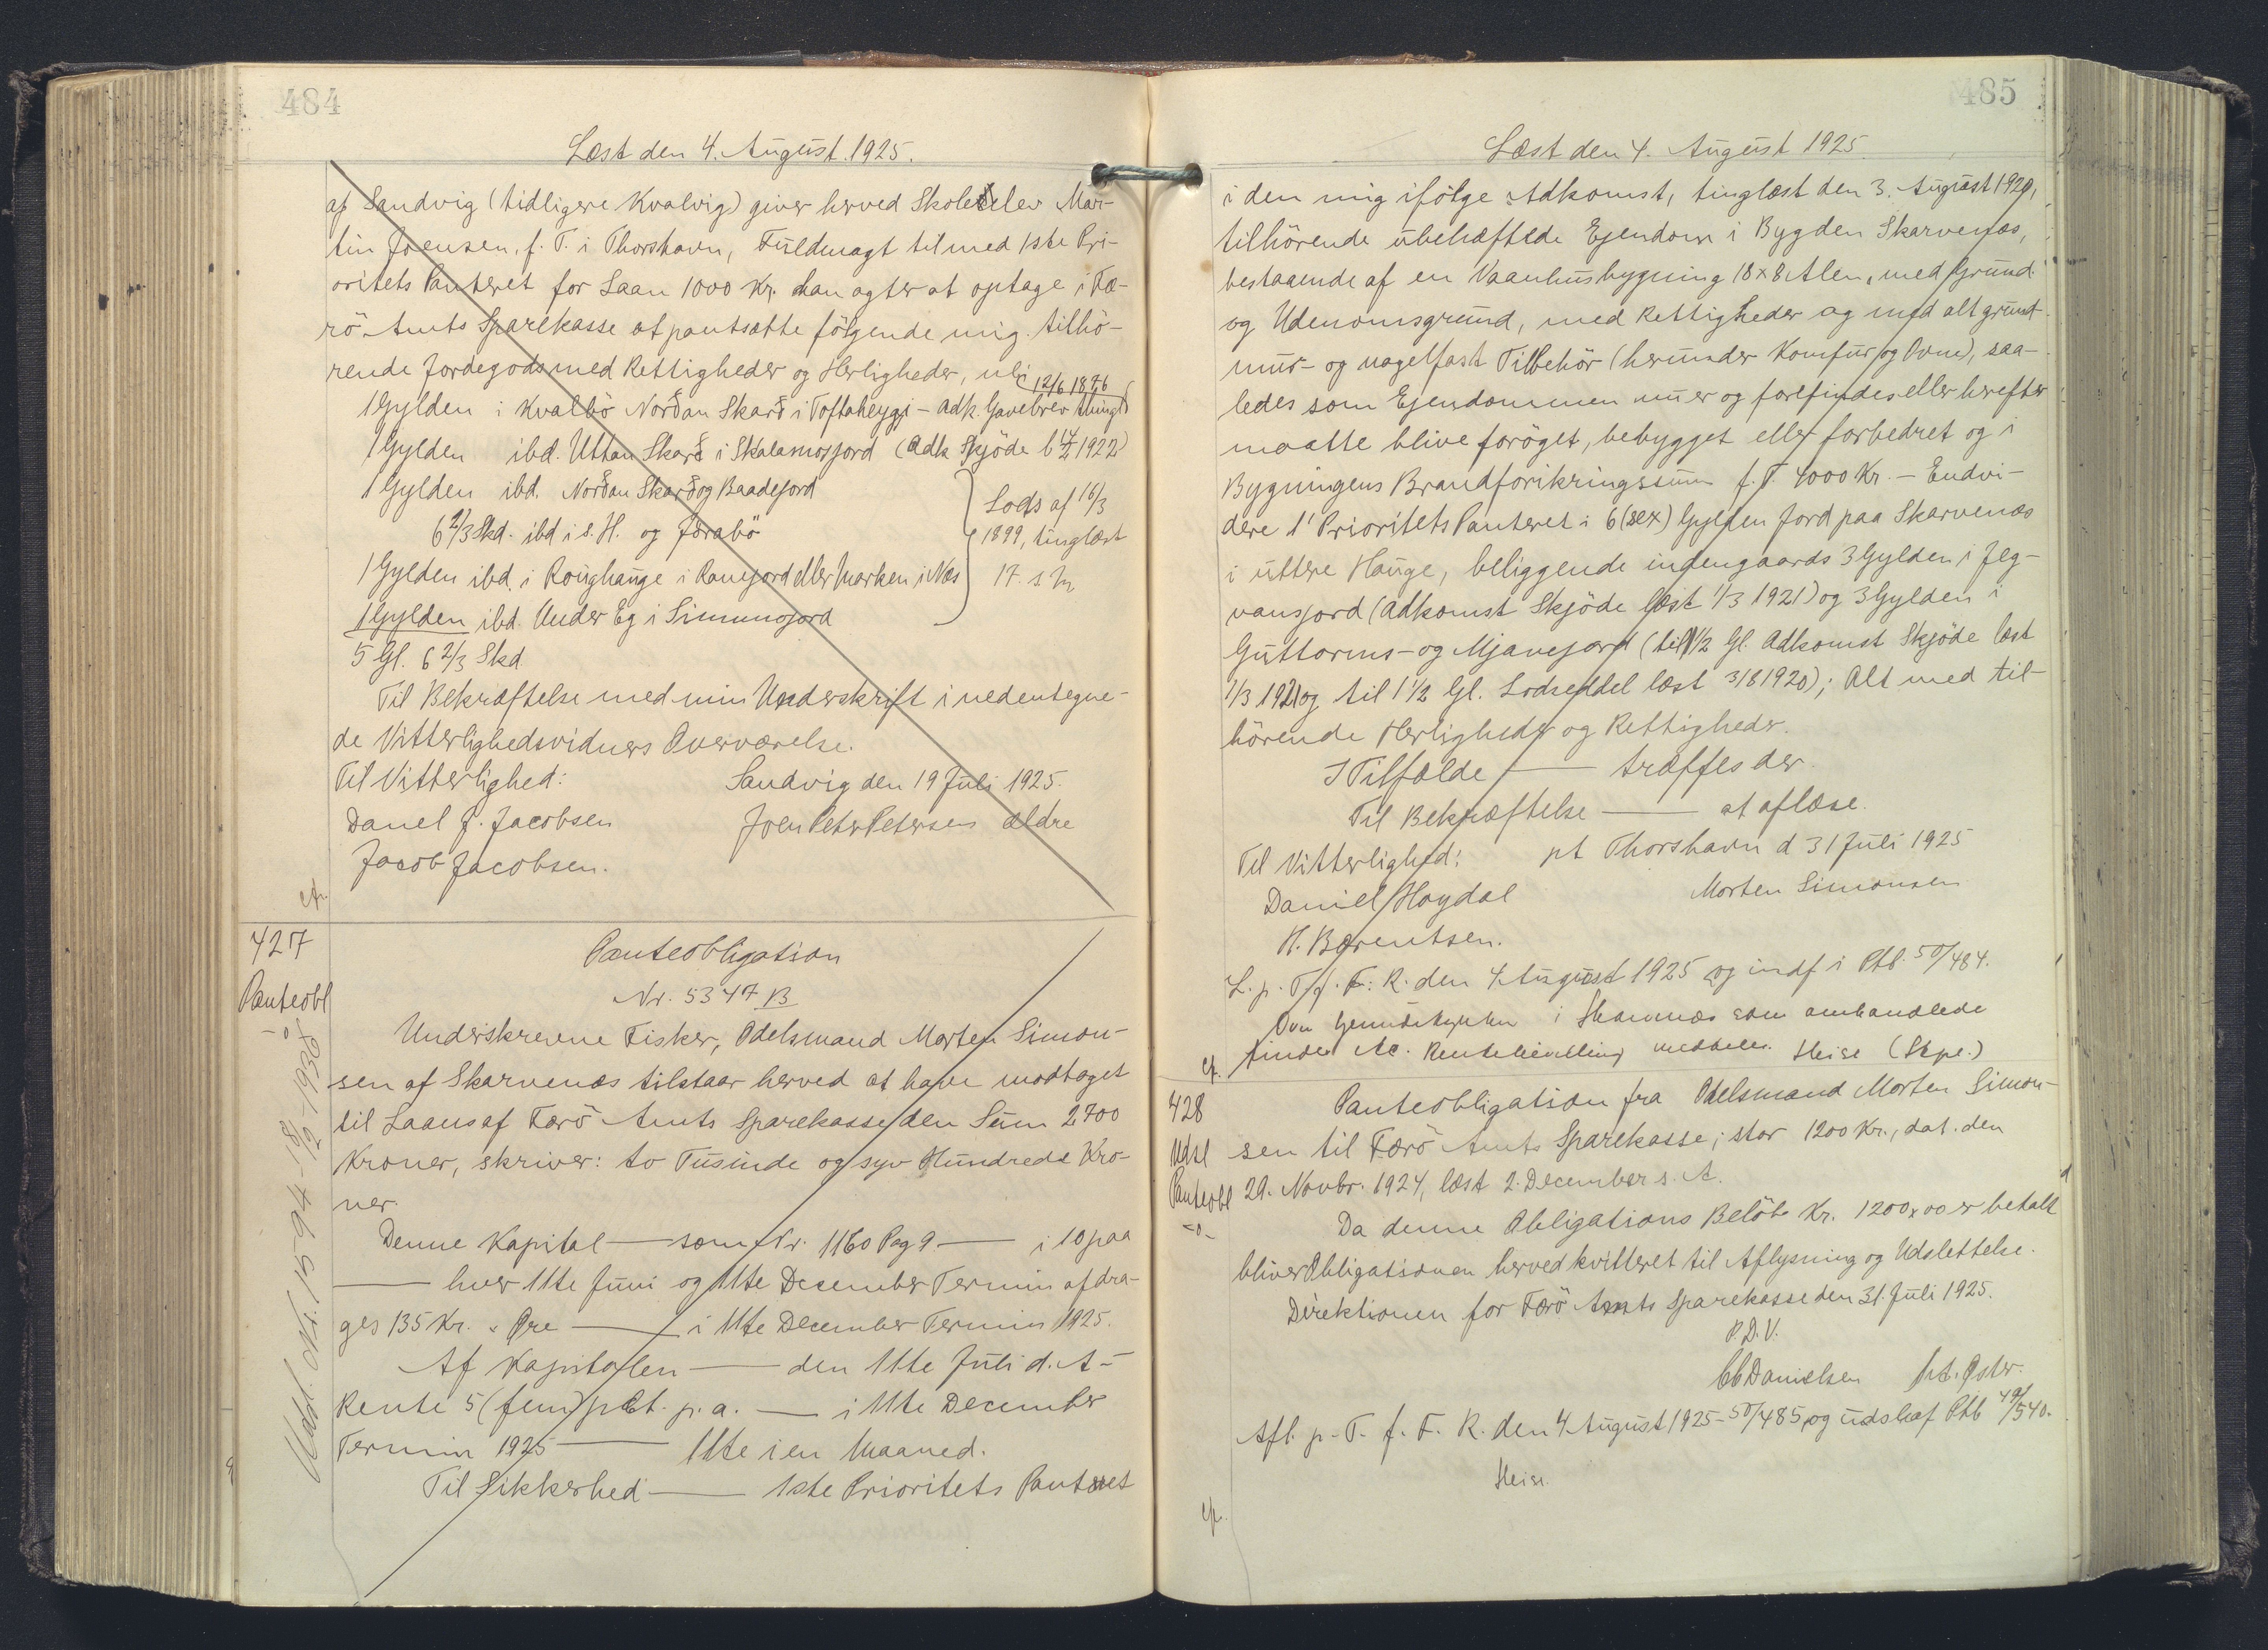 484
Læst den 4. August. 1925.
af Sandvig (tidligere Kvalvig) giver herved Skoleelev Mar-
tin Joensen, f. T. i Thorshavn, Fuldmagt til med 1ste Pri-
oritets Panteret for Laan 1000 Kr. han agter at optage i Fæ-
rö Amts Sparekasse at pantsætte fölgende mig tilhö-
rende Jordegods med Rettigheder og Herligheder, nl:
1 Gylden i Kvalbö Norðan Skarð i Toftaheyggi - Adk. Gavebrev thingl 12/6 1876
1 Gylden ibd. Uttan Skarð i Skalamosjord (Adk Skjöde 6/4 1922)
1 Gylden ibd. Norðan Skarð og Baadejord
6 2/3 Skd. ibd i s. H. og Jørabö
1 Gylden ibd. i Roughauge i Ranejord eller Marken i Næs
1 Gylden ibd. Under Eg i Simunojord
Lods af 16/3
1899, tinglæst
17. s. M
5 Gl. 6 2/3 Skd
Til Bekræftelse med min Underskrift i nedentegne-
de Vitterlighedsvidners Overværelse.
Til Vitterlighed: Sandvig den 19 Juli 1925.
Danel J. Jacobsen Joen Peter Petersen ældre
Jacob Jacobsen.
cf.
427
Panteobl
-o-
Udsl. Nr. 1594 - 18/2-1938
Panteobligation
Nr. 5347 B
Underskrevne Fisker, Odelsmand Morten Simon-
sen af Skarvenæs tilstaar herved at have modtaget
til Laans af Færö Amts Sparekasse den Sum 2700
Kroner, skriver: to Tusinde og syv Hundrede Kro-
ner.
Denne Kapital — som Nr. 1160 Pag 9. — i 10 paa
— hver 11te Juni og 11te December Termin afdra-
ges 135 Kr. " Øre — i 11te December Termin 1925.
Af Kapitalen — den 11te Juli d. A -
Rente 5 (fem) pCt. p. a. — i 11te December
Termin 1925 — 11te i en Maaned.
Til Sikkerhed — 1ste Prioritets Panteret
485
Læst den 4. August 1925.
i den mig ifölge Adkomst, tinglæst den 3. August 1920,
tilhörende ubehæftede Ejendom i Bygden Skarvenæs,
bestaaende af en Vaanhusbygning 18 x 8 Alen, med Grund
og Udenomsgrund, med Rettigheder og med alt grund-
mur- og nagelfast Tilbehör (herunder Komfur og Ovne), saa-
ledes som Ejendommen nu er og forefindes eller herefter
maatte blive foröget, bebygget eller forbedret og i
Bygningens Brandforikringssum f. T. 4000 Kr. - Endvi-
dere 1' Prioritets Panteret i 6 (sex) Gylden Jord paa Skarvenæs
i uttere Hauge, beliggende indengaards 3 Gylden i Jeg-
vansjord (Adkomst Skjöde læst 1/3 1921) og 3 Gylden i
Guttorms- og Mjavejord (til 1 1/2 Gl. Adkomst Skjöde læst
1/3 1921 og til 1 1/2 Gl. Lodseddel læst 3/8 1920); Alt med til-
hörende Herligheder og Rettigheder.
I Tilfælde — træffes der.
Til Bekræftelse — at aflæse.
Til Vitterlighed: pt Thorshavn d 31 Juli 1925
Daniel Høgdal Morten Simonsen
H. Børentsen.
L. p. T. f. F. R. den 4 August 1925 og indf i Ptb. 50/484.
i Skarvnæs som ombandlede
Heise (Stpl.)
cf.
428
Udsl
Panteobl
-o-
Panteobligation fra Odelsmand Morten Simon-
sen til Færö Amts Sparekasse, stor 1200 Kr., dat. den
29. Novbr. 1924, læst 2. December s. A.
Da denne Obligations Belöb Kr. 1200,00 er betalt
bliver Obligationen herved kvitteret til Aflysning og Udslettelse.
Direktionen for Færö Amts Sparekasse den 31. Juli 1925.
P. D. V.
CC Danielsen Chr. Øster.
Afl. p. T. f. F. R. den 4 August 1925 - 50/485, og udsl. af Ptb 49/540.
Heise.
cf.